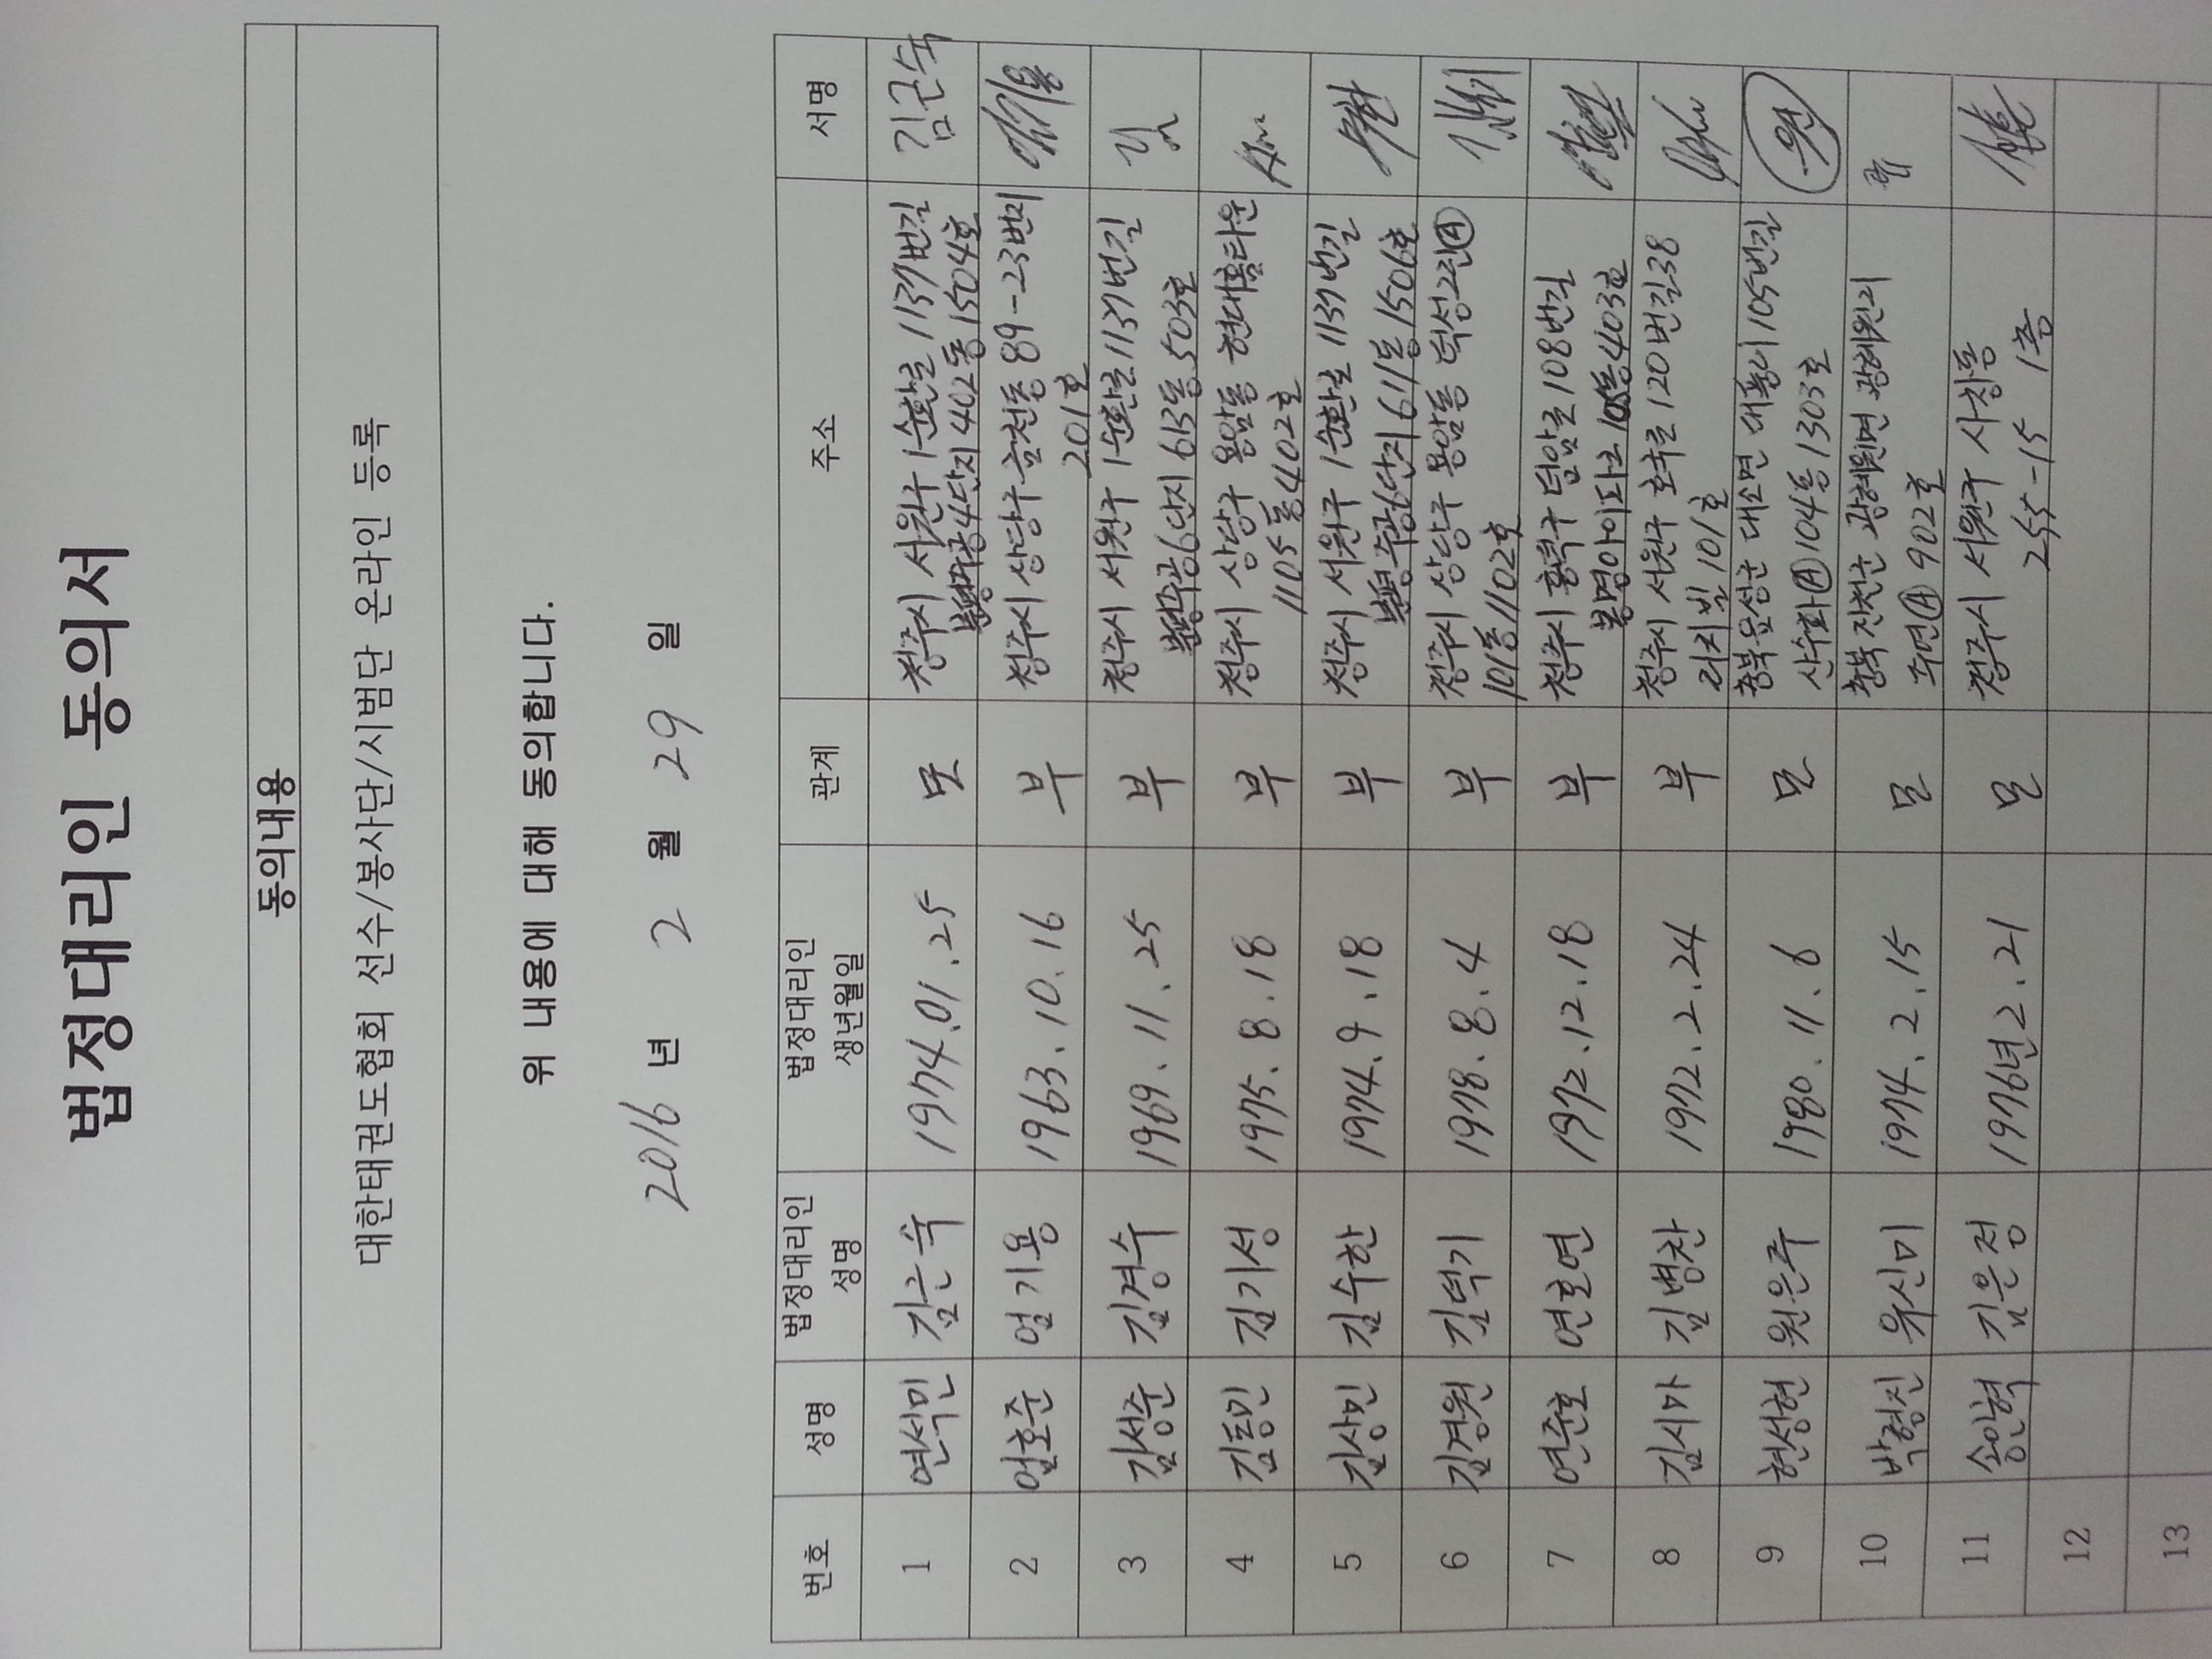 법정대리인 동의서
동의내용
대한태권도협회 선수/봉사단/시범단 온라인 등록
위 내용에 대해 동의합니다.
2016 년 2 월 29 일
번호 성명 법정대리인 성명 법정대리인 생년월일 관계 주소 서명
1 연석민 김근숙 1974.01.25 모 청주시 서원구 1순환로 1137번길 김근숙
분평주공4단지 402동 1504호
2 엄호준 엄기용 1963.10.16 부 청주시 상당구 금천동 89-23번지
201호
3 김성준 김경수 1969.11.25 부 청주시 서원구 1순환로 1137번길
분평주공6단지 613동 503호
4 김동민 김기성 1975.8.18 부 청주시 상당구 용암동 현대홈타운
1105동 402호
5 김상민 김수한 1974.9.18 부 청주시 서원구 1순환로 1137번길
분평주공6단지 611동 1506호
6 김경원 김덕기 1978.8.4 부 청주시 상당구 용암동 덕성2차Ⓐ
101동 1102호
7 연준호 연호연 1972.12.18 부 청주시 흥덕구 덕암로 108번길
봉명아이파크 105동 403호
8 김시마 김병찬 1972.2.24 부 청주시 서원구 호국로 120번길 38
리치빌 101호
9 현성현 원은주 1980.11.6 모 충북 음성군 대소면 대풍리 105번길
산수화Ⓐ 104동 1303호
10 박형진 유신미 1974.2.15 모 충북 진천군 광혜원면 광혜원리
Ⓐ 902호
11 송민혁 김은정 1976년 2.21 모 청주시 서원구 사창동
255-15 1층
12
13